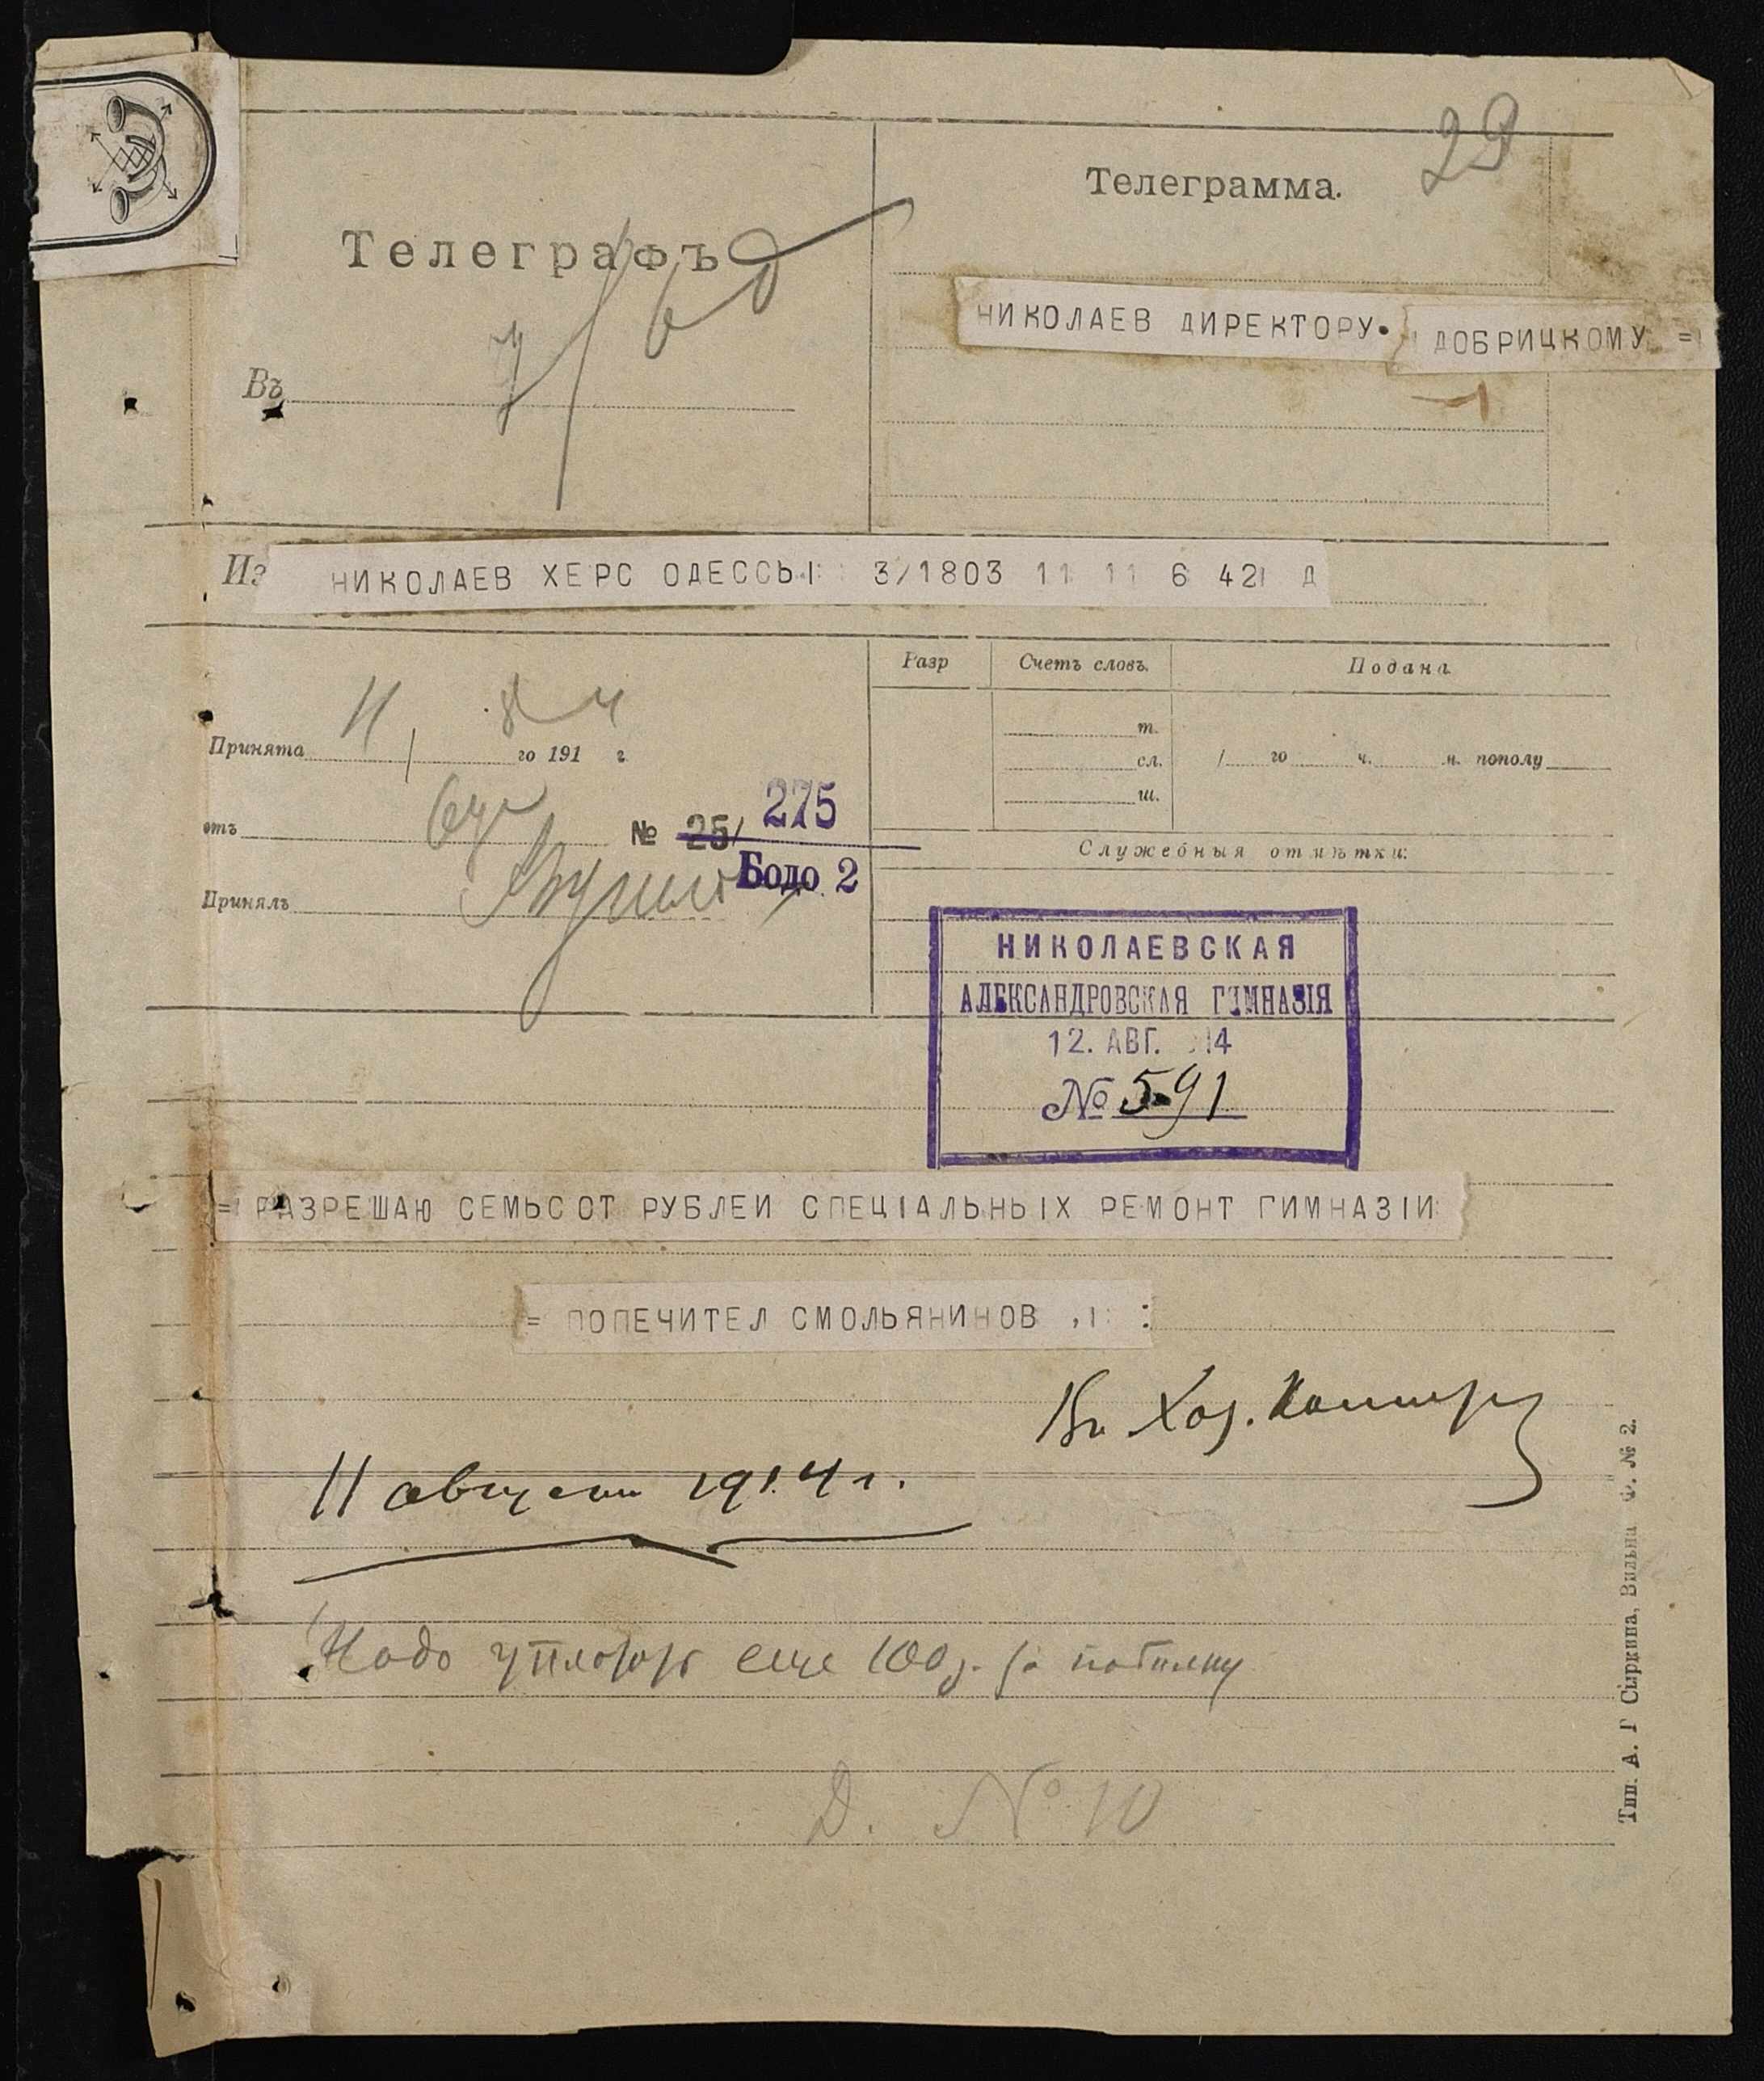 29
Телеграмма.
Телеграфъ
НИКОЛАЕВ ДИРЕКТОРУ ДОБРИЦКОМУ =
Въ
Из НИКОЛАЕВ ХЕРС ОДЕССЫ 3/1803 11 11 6 42 Д
Разр Счетъ словъ. Подана
11 8 4
Принята го 191 г.
т.
сл. / го ч. м. пополу
ш.
отъ № 25/ 275
Бодо 2
Служебныя отмѣтки:
Принялъ
НИКОЛАЕВСКАЯ
АЛЕКСАНДРОВСКАЯ ГИМНАЗІЯ
12. АВГ. 14
№ 591
= РАЗРЕШАЮ СЕМЬСОТ РУБЛЕИ СПЕЦІАЛЬНЫХ РЕМОНТ ГИМНАЗІИ
= ПОПЕЧИТЕЛ СМОЛЬЯНИНОВ
Въ Хоз. Комит
11 августа 1914 г.
Надо еще 100 р.
Д. № 10
Тип. А. Г Сыркина, Вильна Ф. № 2.